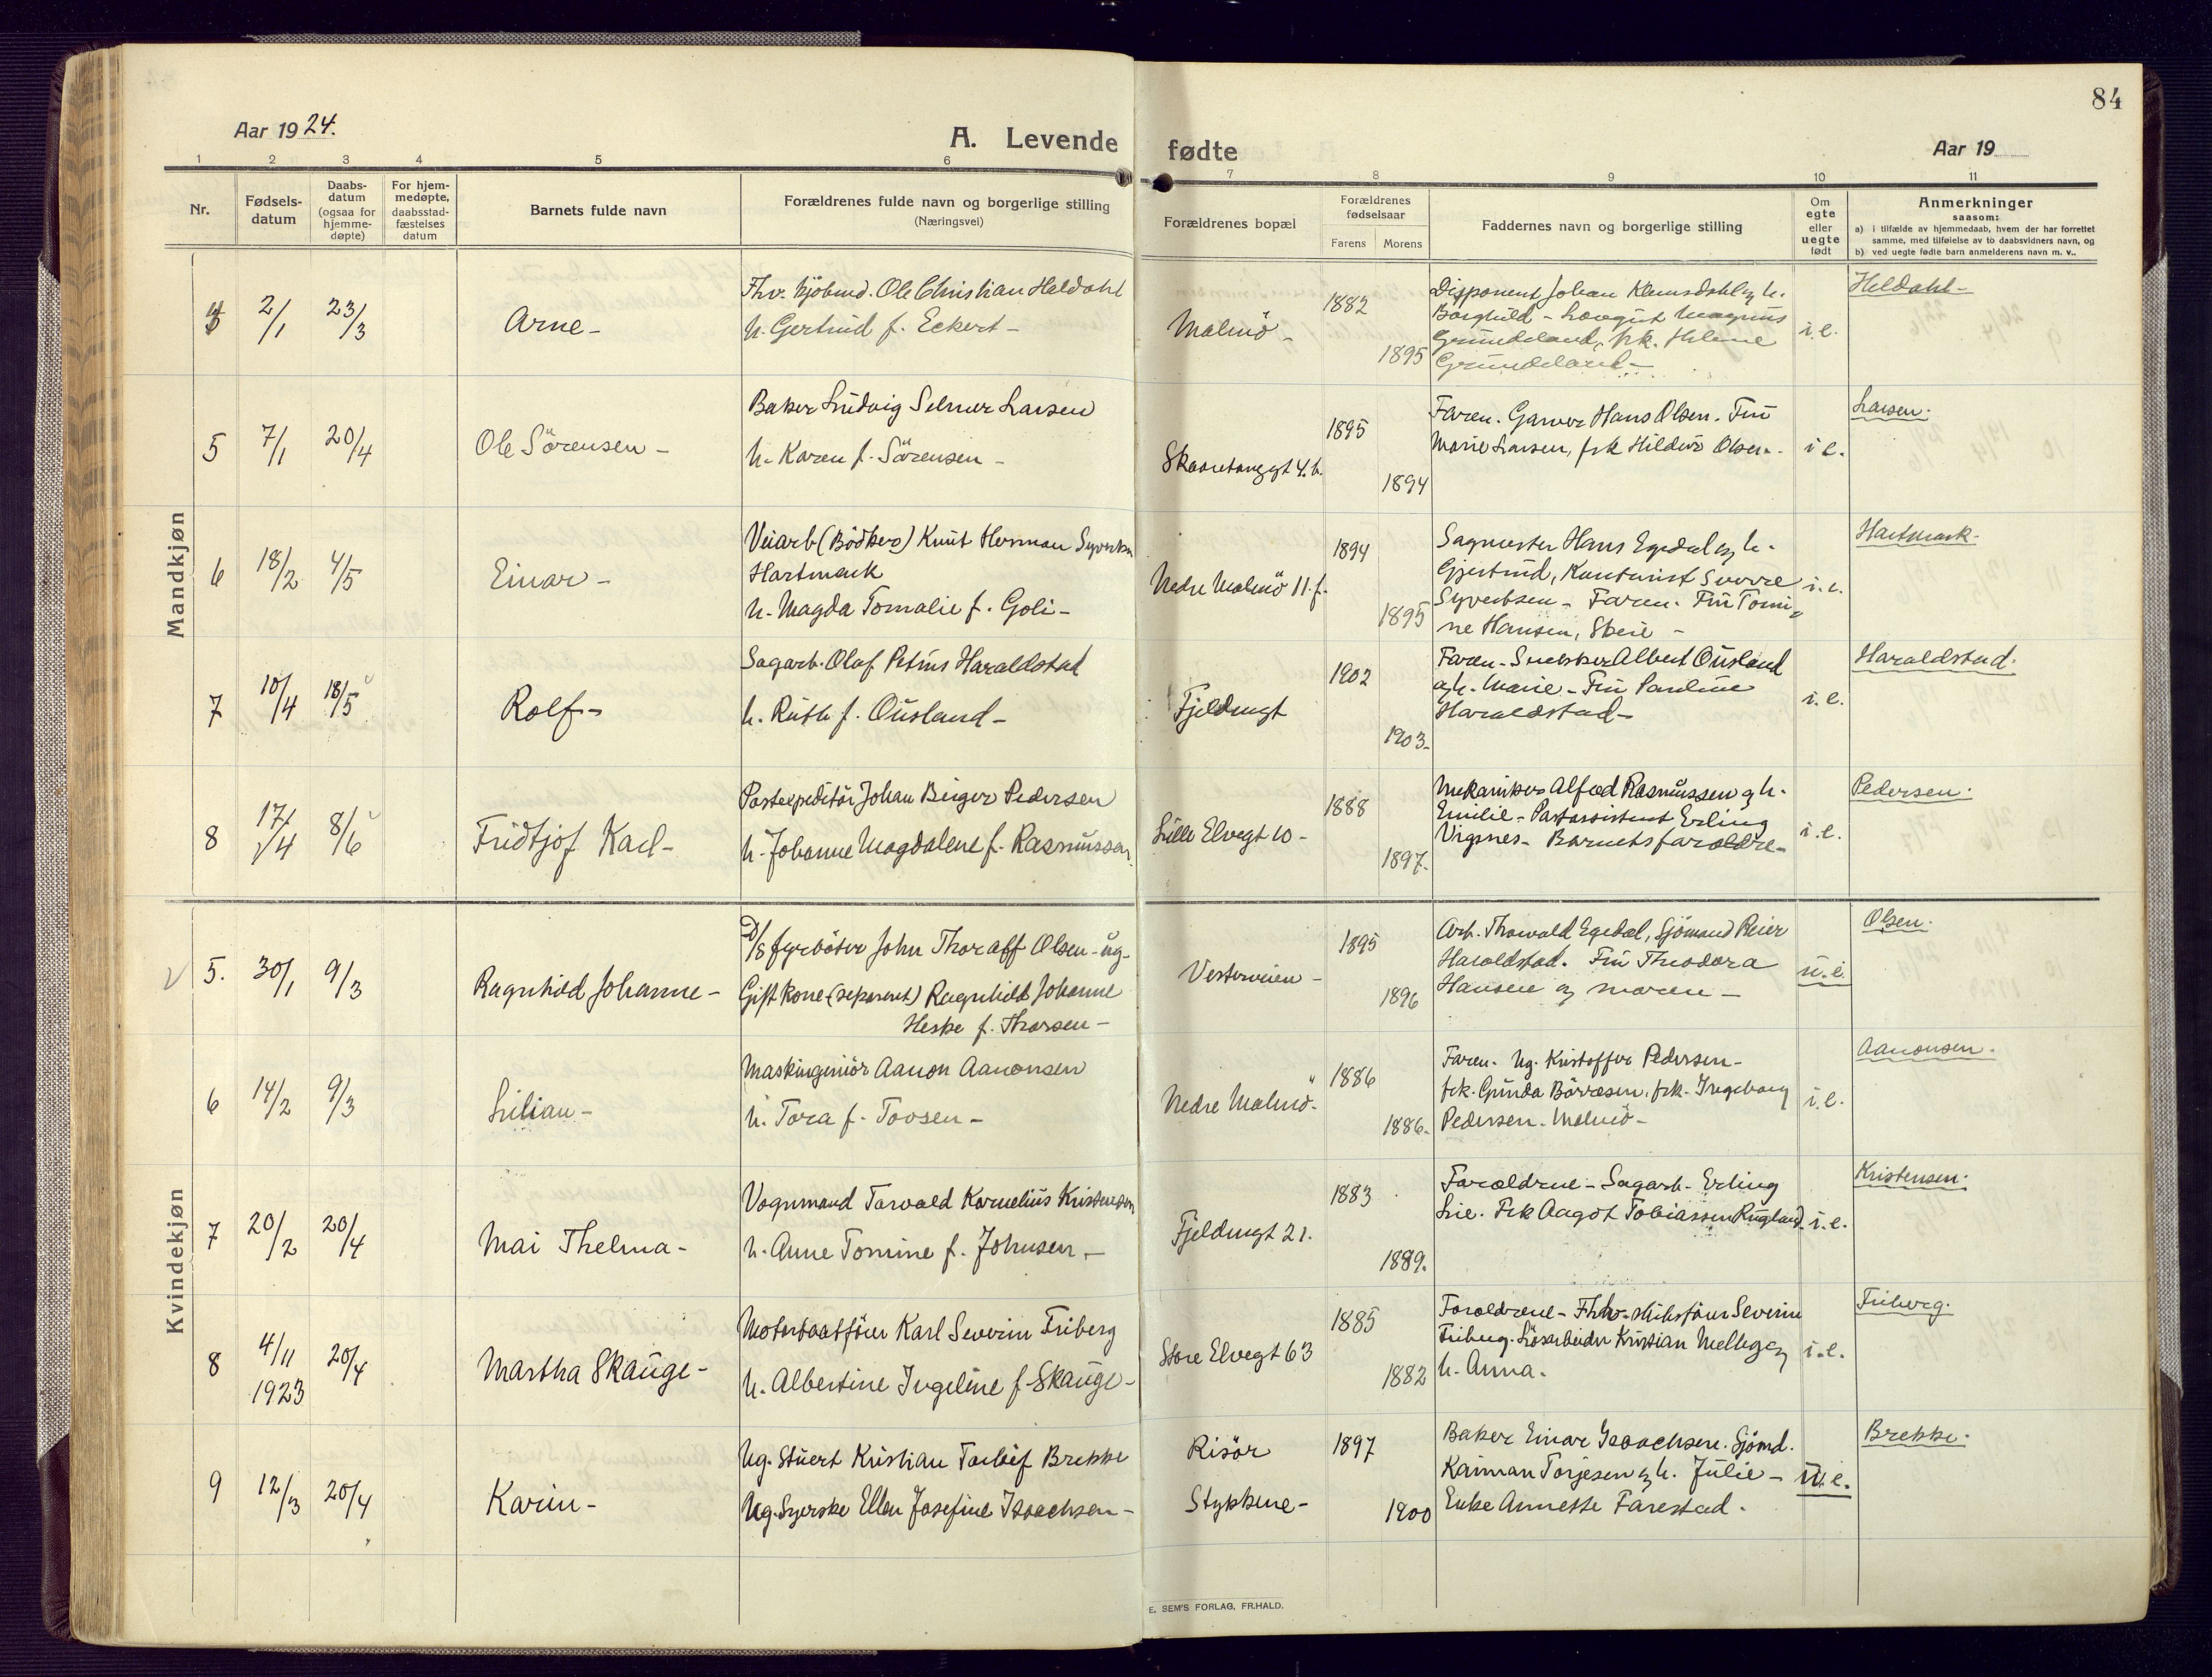 84
Aar 1924.
A. Levende fødte
Aar 19
1 2 3 4 5 6 7 8 9 10 11
Nr.
Fødsels-
datum
Daabs-
datum
(ogsaa for
hjemme-
døpte)
For hjem-
medøpte,
daabsstad-
fæstelses
datum
Barnets fulde navn
Forældrenes fulde navn og borgerlige stilling
(Næringsvei)
Forældrenes bopæl
Forældrenes
fødselsaar
Farens Morens
Faddernes navn og borgerlige stilling
Om
egte
eller
uegte
født
Anmerkninger
saasom:
a) i tilfælde av hjemmedaab, hvem der har forrettet
samme, med tilføielse av to daabsvidners navn, og
b) ved uegte fødte barn anmelderens navn m. v..
Mandkjøn
4
2/1
23/3
Arne-
Fhv. Kjöbmd. Ole Christian Heldahl
h. Gertrud f. Eckert-
Malmö-
1882
1895
Disponent Johan Klemsdahl og h.
Borghild - Magnus
Grundeland, frk. Helene
Grundeland-
i.e.
Heldahl-
5
7/1
20/4
Ole Sörensen-
Baker Ludvig Selmer Larsen
h. Karen f. Sörensen-
1895
1894
Faren. Garver Hans Olsen. Fru
Marie Larsen, frk Hildur Olsen.
i e.
Larsen.
6
18/2
4/5
Einar-
Veiarb (Bödker) Knut Herman Syvertsen
Hartmark
h. Magda Tomalie f. Goli-
Nedre Malmö 11.f.
1894
1895
Sagmester Hans Egedal og h.
Gjertrud, Kontorist Sverre
Syvertsen - Faren. Fru Tomi-
ne Hansen, Skeie-
i.e.
Hartmark-
7
10/4
18/5
Rolf-
Sagarb. Olaf Petrus Haraldstad
h. Ruth f. Ousland-
Fjeldnugt
1902
1903-
Faren-Snekker Albert Ousland
og h. Marie - Fru Pauline
Haraldstad-
i.e.
Haraldstad.
8
17/4
8/6
Fridtjof Karl-
Postexpeditör Johan Birger Pedersen
h. Johanne Magdalene f. Rasmussen
Lille Elvegt 10-
1888
1897.
Mekaniker Alfred Rasmussen og h.
Emilie-Postassistent Erling
Vigsnes- Barnets forældre-
i.e.
Pedersen.
Kvindekjøn
5.
30/1
9/3
Ragnhild Johanne-
D/S fyrböter John Thoralf Olsen-ug-
Gift kone (separert) Ragnhild Johanne
Heske f. Thorsen-
Vesterveien-
1895
1896
Arb. Thorvald Egedal, Sjömand Peier
Haraldstad. Fru Theodora
Hansen og moren-
u.e.
Olsen.
6
14/2
9/3
Lilian-
Maskingeniör Aanon Aanonsen
h. Tora f. Tovsen-
Nedre Malmö.
1886
1886-
Faren. Ug. Kristoffer Pedersen-
frk. Gunda Börresen, frk. Ingeborg
Pedersen. Malmö-
i.e.
Aanonsen.
7
20/2
20/4
Mai Thelma-
Vognmand Torvald Kornelius Kristensen
h. Anne Tomine f. Johnsen-
Fjeldnugt 21.
1883
1889.
Forældrene-Sagarb. Erling
Lie. Frk Aagot Tobiassen Rugland
i.e.
Kristensen.
8
4/11
1923
20/4
Martha Skauge-
Motorbaatförer Karl Severin Friberg
h. Albertine Ingeline f. Skauge-
Store Elvegt 63
1885
1882
Forældrene-Fhv. skibsförer Severin
Friberg. Lösarbeider Kristian Melleg og
h. Anna.
i.e.
Friberg.
9
12/3
20/4
Karin-
Ug. Stuert Kristian Torleif Brekke
Ug. Syerske Ellen Josefine Isaachsen-
Risör
Stykkene-
1897
1900
Baker Einar Isaachsen. Sjömd.
Kaiman Torjesen og h. Julie-
Enke Annette Farestad.
u.e.
Brekke.
E. SEM'S FORLAG, FR.HALD.